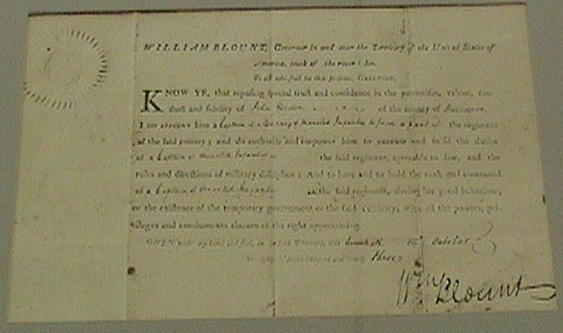 WILLIAM BLOUNT, Governor in and over the Territory of the United States of
America, south of the river Ohio,
To all who shall see these presents, GREETING.
KNOW YE, that reposing special trust and confidence in the patriotism, valour, con-
duct and fidelity of John of the county of Davidson
I do appoint him a Captain of a Company of Mounted Infantry to form a part of the regiment
of the said county; and do authorise and impower him to execute and fulfil the duties
of a Captain of Mounted Infantry in the said regiment, agreeable to law, and the
rules and directions of military discipline: And to have and to hold the rank and command
of a Captain of Mounted Infantry in the said regiment, during his good behaviour,
or the existence of the temporary government of the said Territory, with all the powers, pri-
vileges and emoluments thereto of the right appertaining.
GIVEN under my hand and seal, in the said Territory, this day October
hundred and ninety three
Wm Blount